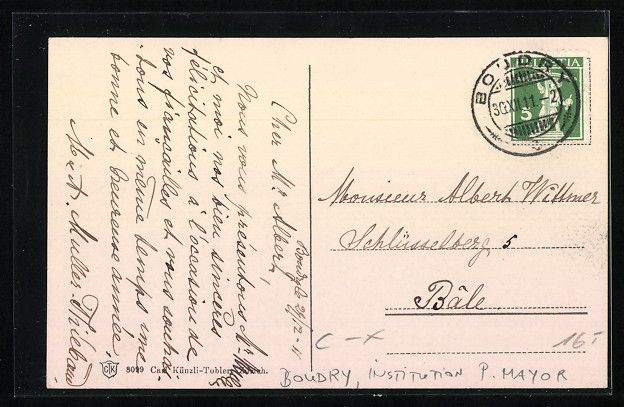 Boudry le 29/12-11
Cher Mr. Albert,
Nous vous présentons Mr. Muller
et moi nos bien sincères
félicitations à l'occasion de
vos fiançailles et vous souhai-
tons en même temps une
bonne et heureuse année.
M. & A. Muller-Thiébaud
BOUDRY
30.XII.11.-2
HELVETIA
5
Monsieur Albert Wittmer
Schlüsselberg 5
Bâle.
C -x
16.-
CTK 8099 Carl Künzli-Tobler, Zürich.
BOUDRY, INSTITUTION P. MAYOR